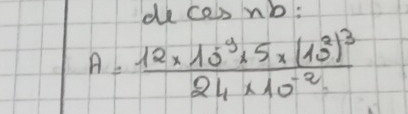 de ces nb:
A = \frac{12 × 10^9 × 5 × (10^2)^3}{24 × 10^{-2}}